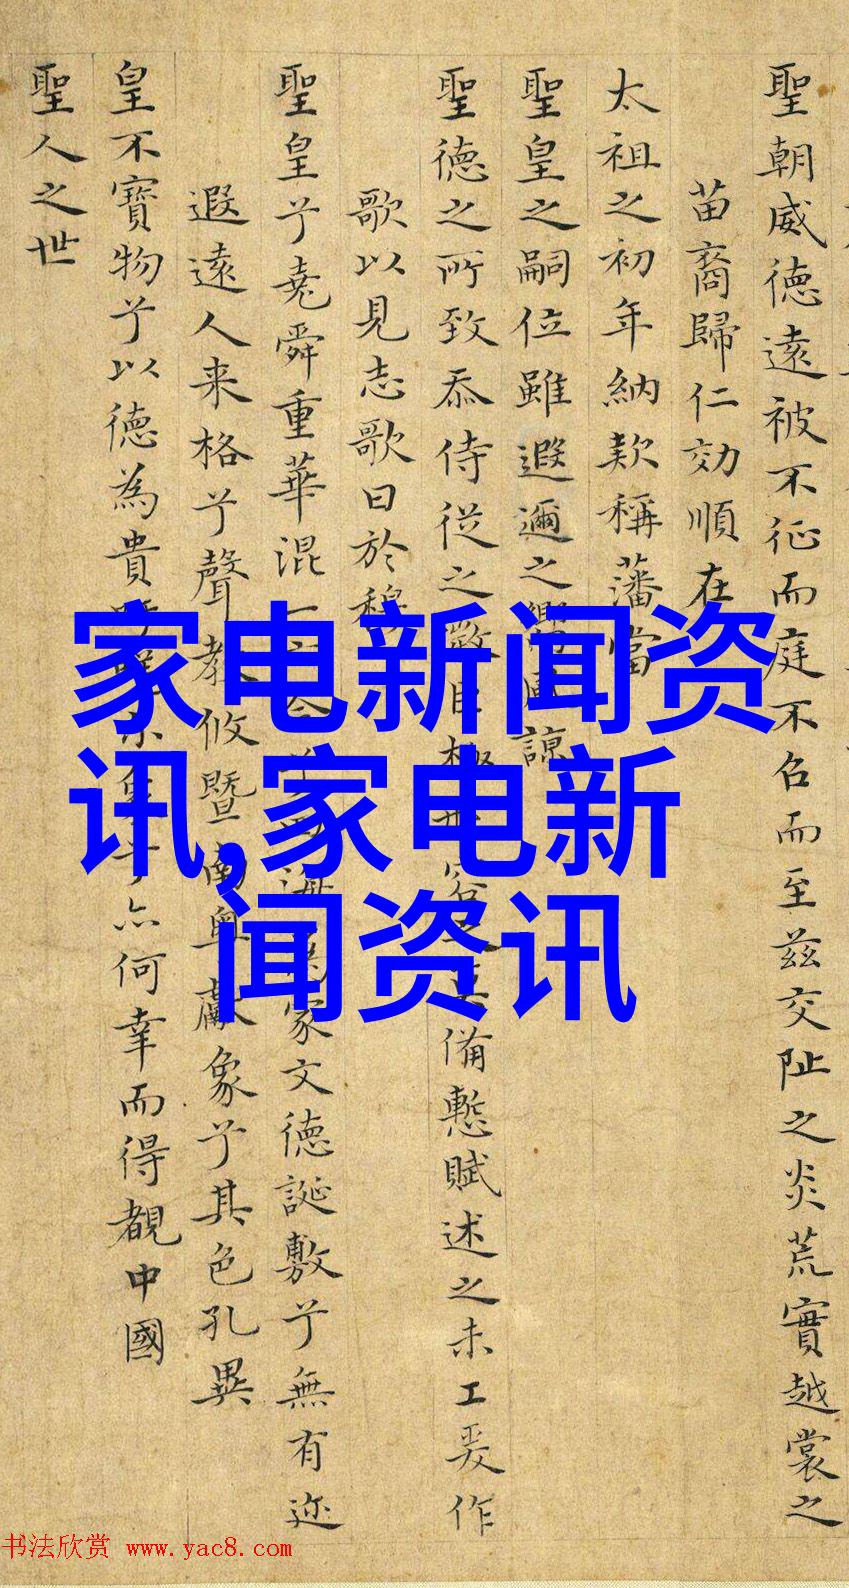 聖朝威德遠被不征而庭不召而至茲交阯之炎荒實越裳之
苗裔歸仁効順在
太祖之初年納款稱藩當
聖皇之嗣位雖遐邇之嚮風諒
聖德之所致忝侍從之微臣
備慙賦述之未工爰作
歌以見志歌曰於穆
聖皇兮堯舜重華混一
家文德誕敷兮無有迩
遐遠人来格兮聲教攸暨南粤獻象兮其色孔異
皇不寶物兮以德為貴
兮亦何幸而得覩中國
聖人之世
家电新闻资
讯,家电新
闻资讯
书法欣赏 www.yac8.com